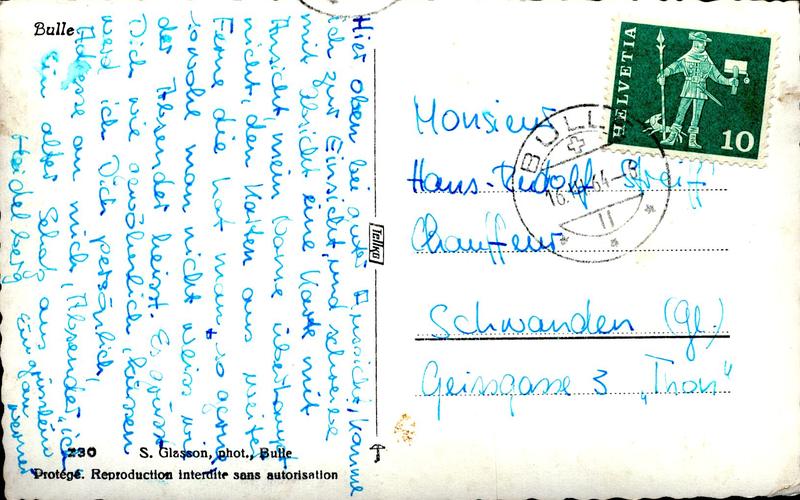 Bulle
Hier oben bei guter Aussicht, komme
ich zur Einsicht, und schreibe
mit Absicht eine Karte mit
Ansicht mein Name überhaupt
nicht, den Karten aus weiter
Ferne die hat man, so gerne
sowohl man nicht weiss wie
der Absender heisst. Es grüsst
Dich wie gewöhnlich, küssen
werd ich Dich persönlich,
Adresse an mich, Absender, ich
Ein alter Schatz aus
Heidelberg
230 S. Glasson, phot., Bulle
Protégé. Reproduction interdite sans autorisation
Tellko
HELVETIA
10
BULLE
16. 64-6
11
Monsieur
Hans-Rudolf Streiff
Chauffeur
Schwanden (Gl.)
Geissgasse 3 „Thon"